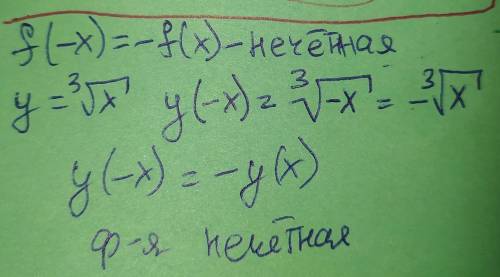 f(-x)=-f(x)-нечётная
y=∛x y(-x)=∛-x=-∛x
y(-x)=-y(x)
ф-я нечётная